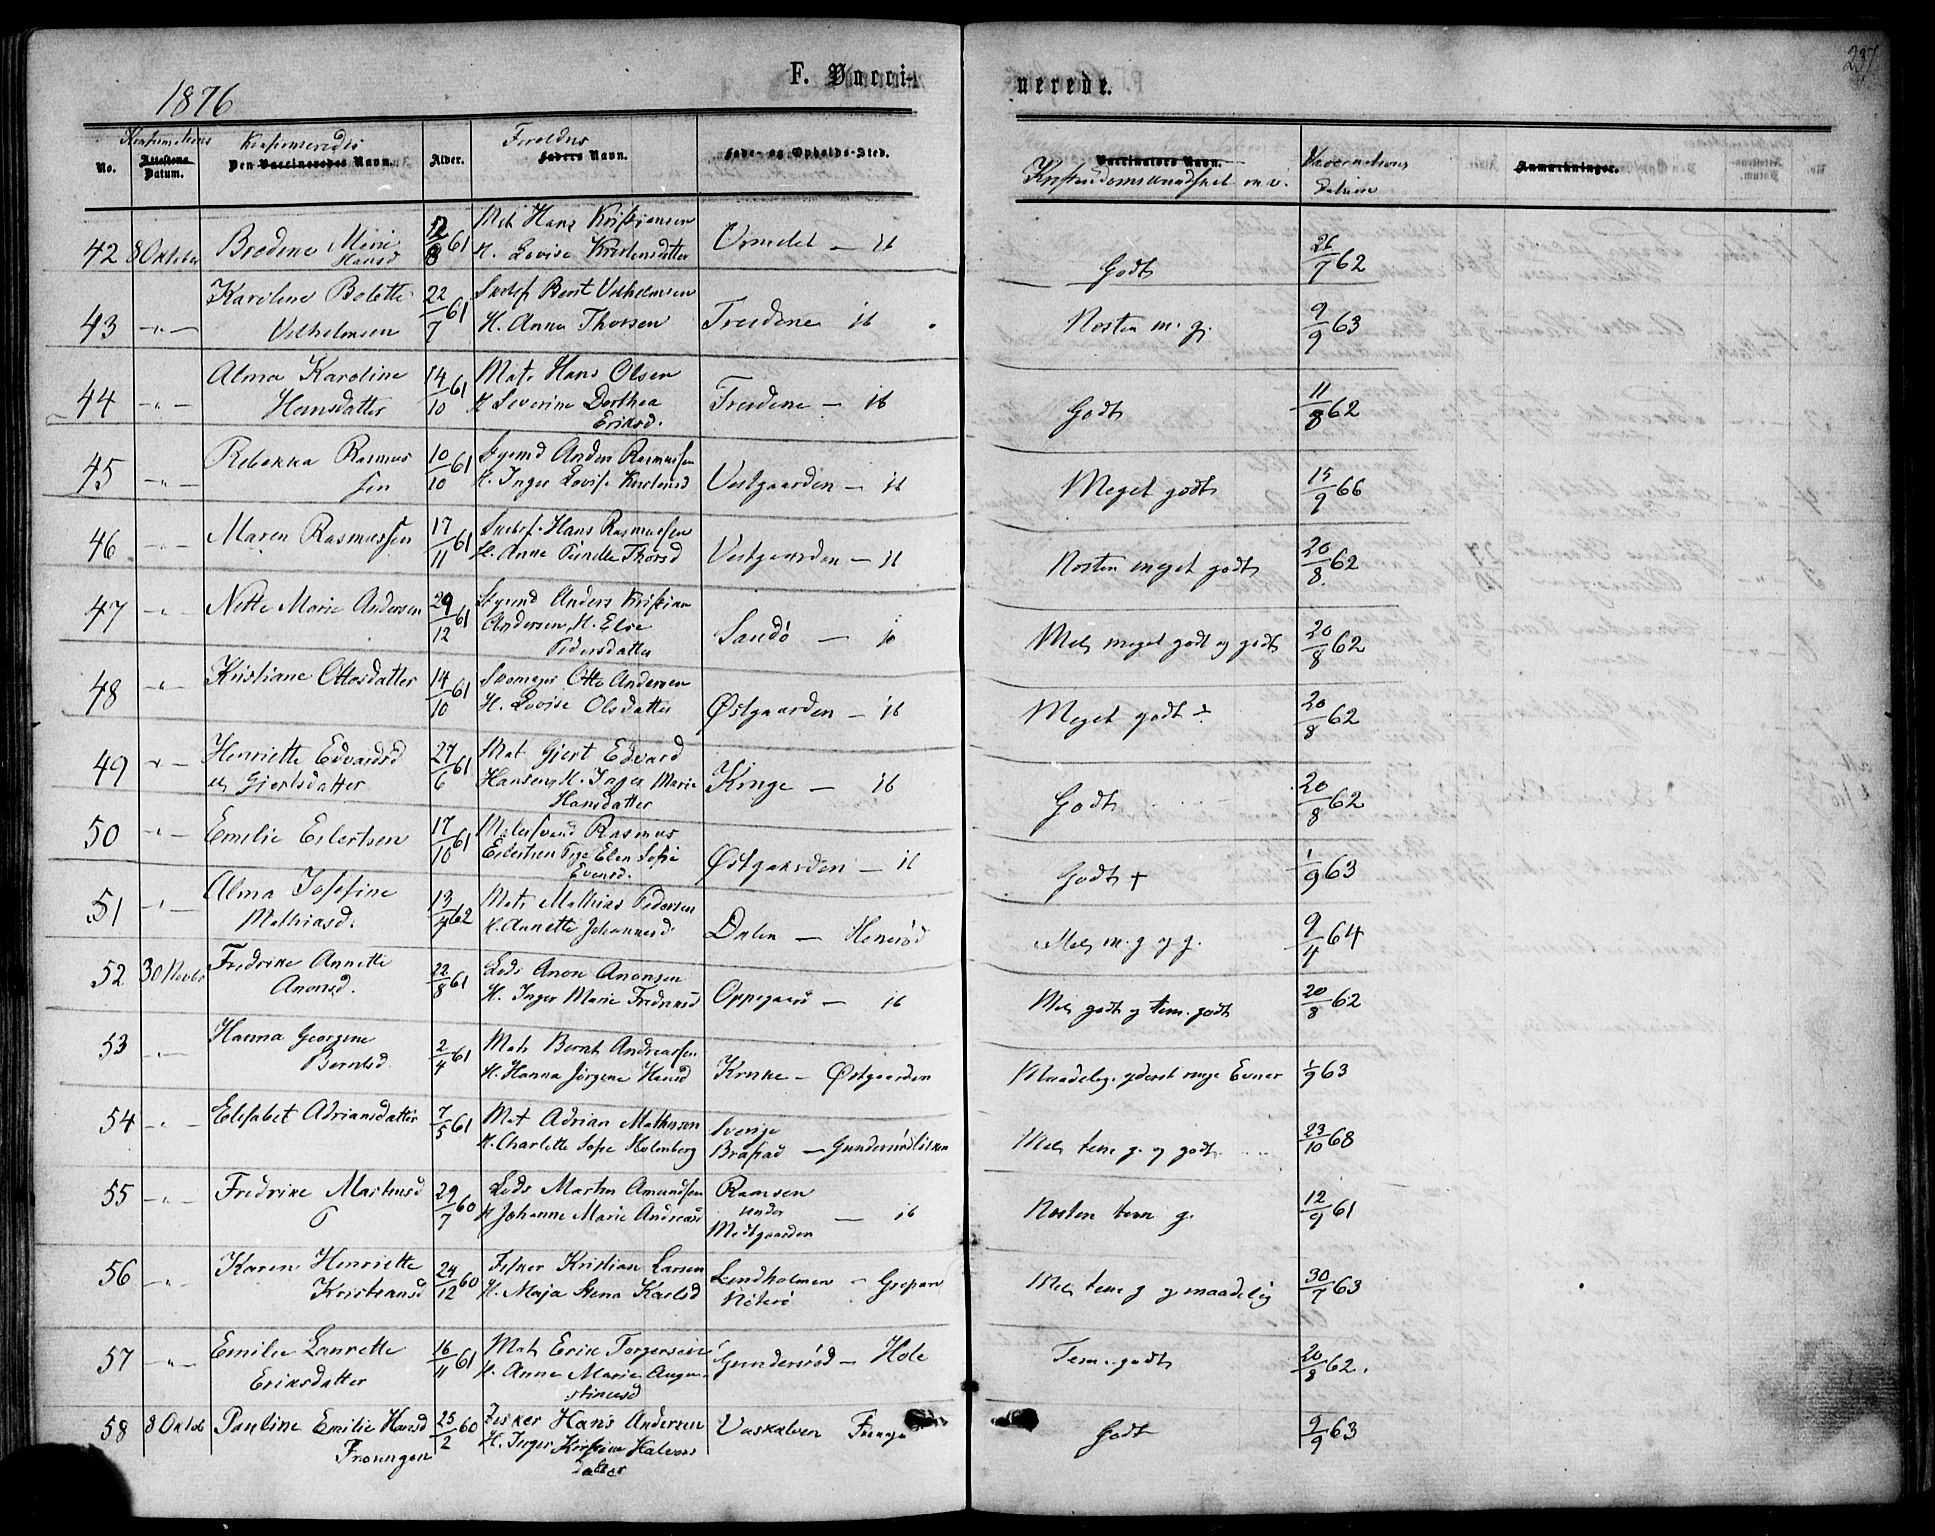 237
1876
F. Vacci- nerede.
No. Konfirmations Attestens Datum. Konfirmeredes Den Vaccineredes Navn. Alder. Forældres Faders Navn. Føde- og Opholds-Sted. Vaccinators Navn. Kristendomskundskab m. v. Vaccinations Datum Anmærkninger.
42 8 Oktober Mini 12/8 61 Mat Hans Kristjansen 26/7 62
Hansd H. Lovise Kristensdatter Urmelet — ib Godt
43 —"— Karoline Bolette 22/7 61 Bent Vilhelmsen 9/9 63
Vilhelmsen H. Anna Thorsen ib Næsten m. g.
44 —"— Alma Karoline 14/10 61 Mat. Hans Olsen 11/8 62
Hansdatter H Severine Dorthea — ib Godt
Eriksd.
45 —"— Rebekka Rasmus 10/10 61 Styrmd Anders Rasmussen 15/9 66
sen H. Inger Lovise Vestgaarden — ib Meget godt
46 —"— Maren Rasmussen 17/11 61 Hans Rasmussen 20/8 62
H. Anne Pernille Thorsd Vestgaarden — ib Næsten meget godt
47 —"— Nette Marie Andersen 29/12 61 Styrmd Anders Kristian 20/8 62
Andersen, H. Else Sandø — ib Mel. meget godt og godt
Pedersdatter
48 —"— Kristiane Ottosdatter 14/10 61 Otto Andersen 20/8 62
H. Lovise Olsdatter Østgaarden — ib Meget godt ÷
49 —"— Henriette Edvardsd 27/6 61 Mat Gjert Edvard 20/8 62
el. Gjertsdatter Hansen, H. Inger Marie — ib Godt
Hansdatter
50 —"— Emilie Eilertsen 17/10 61 Rasmus 1/9 63
Eilertsen Pige Elen Sofie Østgaarden — ib Godt +
Evensd.
51 —"— Alma Josefine 13/4 62 Mat. Mathias Pedersen 9/4 64
Mathiasd. H. Annette Johannesd Dalen — Mel. m. g. og g.
52 30 Novbr Fredrike Annette 22/8 61 Lods Anon Anonsen 20/8 62
Anonsd. H. Inger Marie Fredriksd Oppegaard — ib Mel. godt og tem. godt
53 —"— Hanna Georgine 2/4 61 Mat. Bernt Andreassen 1/9 63
Berntsd H. Hanna Jørgine Hansd — Østgaarden Maadelig. yderst ringe Evner
54 —"— Elisabet Adriansdatter 7/5 61 Mat Adrian Mathisen Sverige 23/10 68
H. Charlotte Sofie Holmberg — Mel. tem g. og godt
55 —"— Fredrike Martinsd 29/7 60 Lods Martin Amundsen Ramsen 12/9 61
H Johanne Marie Andreasd under Midtgaarden — ib Næsten tem g.
56 —"— Karen Henriette 24/12 60 Fisker Kristian Larsen Lindholmen 30/7 63
Kristiansd H. Maja Stina Karlsd Nøterø Mel. tem g og maadelig
57 —"— Emilie Laurette 16/11 61 Mat Erik Torgersen 20/8 62.
Eriksdatter H. Anne Marie Augu- Gundersrød — Hole Tem. godt
stinusd
58 8 Oktob Pauline Emilie Hansd 25/2 60 Fisker Hans Andersen Vaskalven 9/9 63
H. Inger Kirstine Halvors Godt
datter